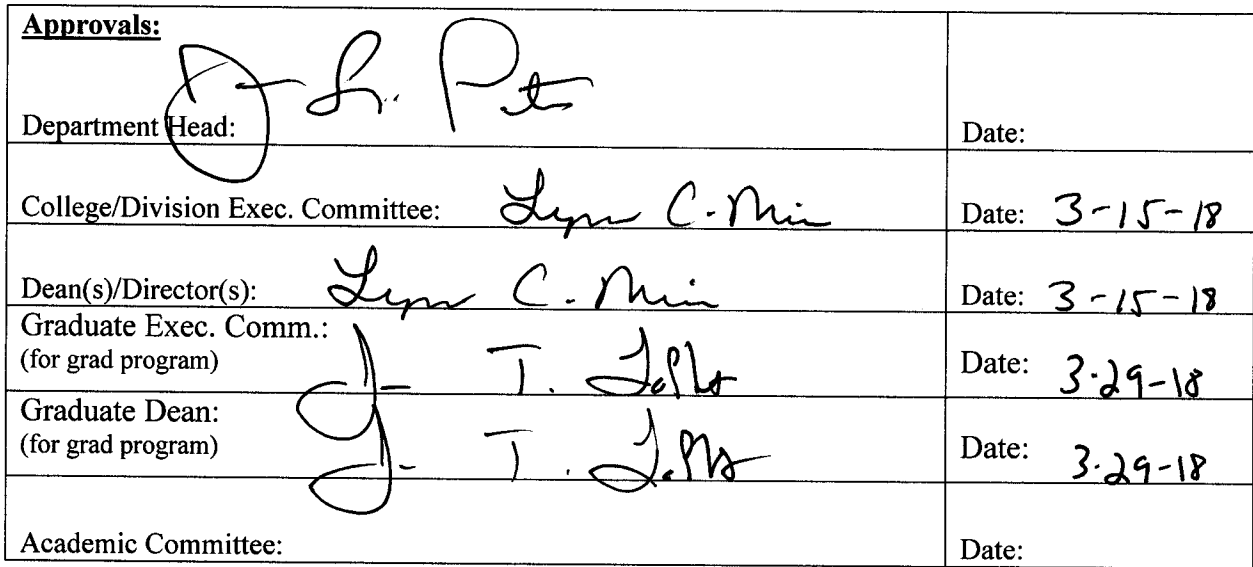 Approvals:
Department Head:
Date:
College/Division Exec. Committee: Lynn C. Min
Date: 3-15-18
Dean(s)/Director(s): Lynn C. Min
Date: 3-15-18
Graduate Exec. Comm.:
(for grad program)
J. T.
Date: 3-29-18
Graduate Dean:
(for grad program)
J. T.
Date: 3-29-18
Academic Committee:
Date: